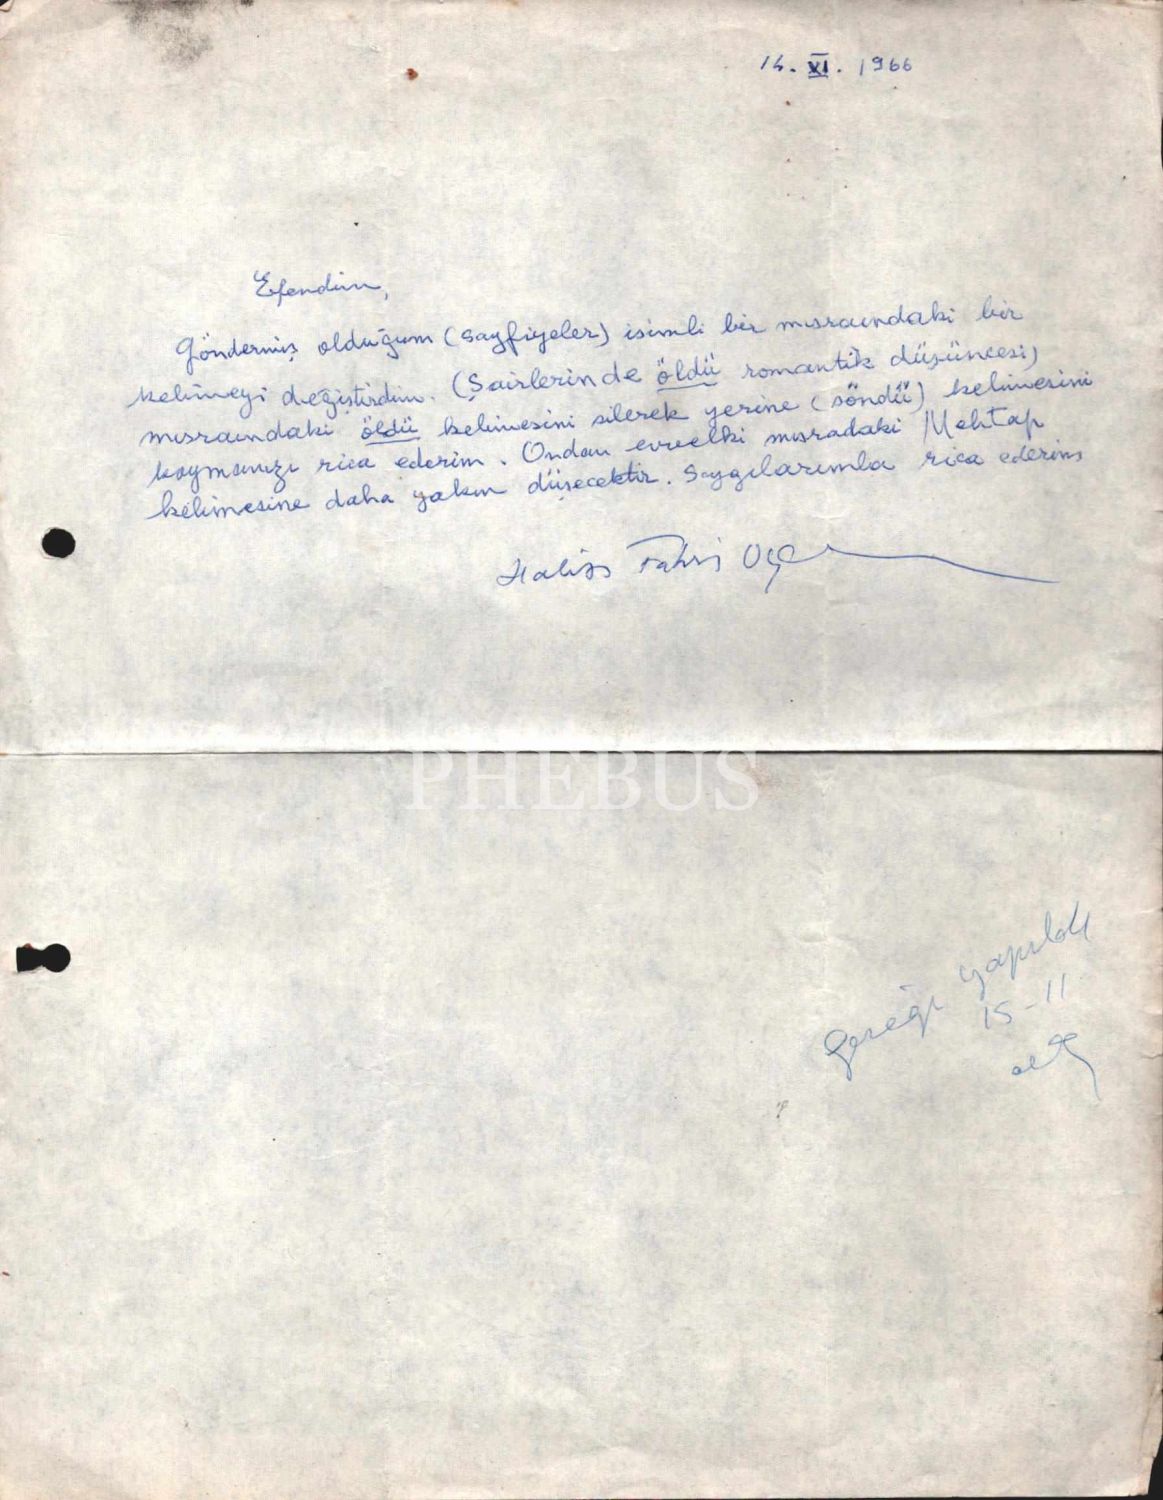 14. XI. 1966
Efendim,
Göndermiş olduğum (Sayfiyeler) isimli bir mısraındaki bir
kelimeyi değiştirdim. (Şairlerinde öldü romantik düşüncesi)
mısraındaki öldü kelimesini silerek yerine (söndü) kelimesini
koymanızı rica ederim. Ondan evvelki mısradaki Mehtap
kelimesine daha yakın düşecektir. Saygılarımla rica ederim
Halis Fahri
PHEBUS
Gereği yapıldı
15-11